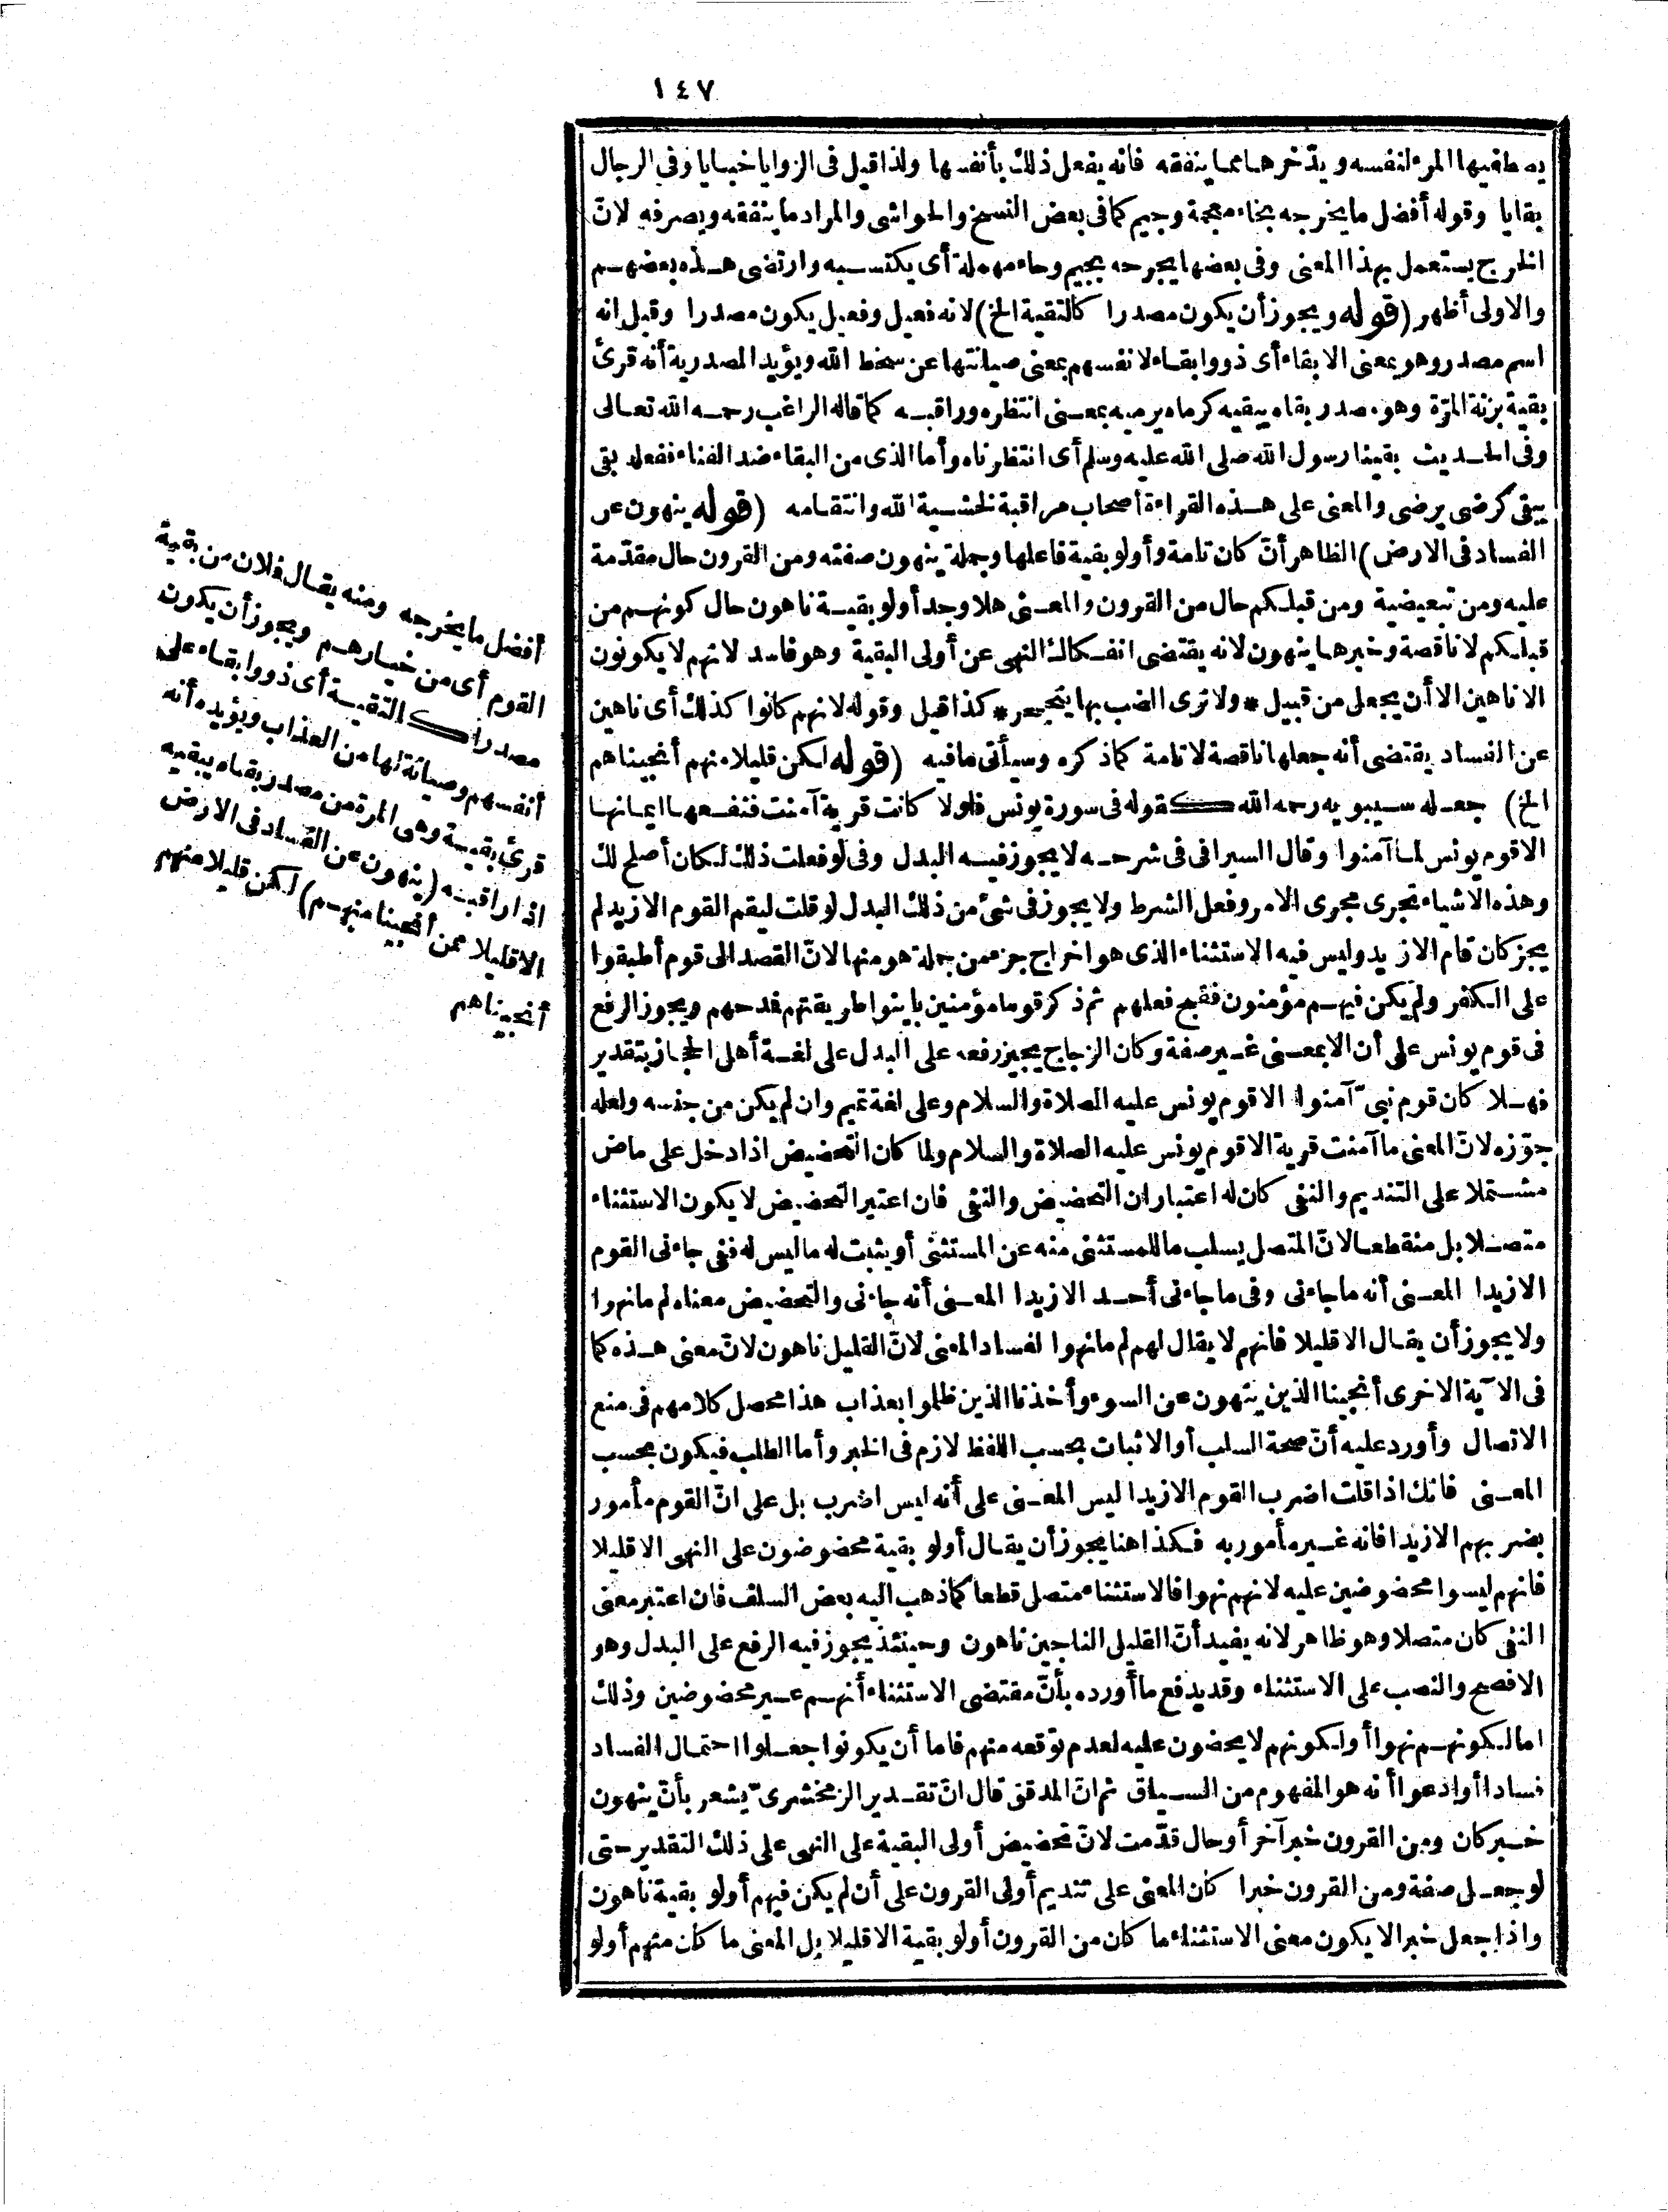 ١٤٧
يصطفيها المرء لنفسه ويدّخرها مما ينفقه فانه يفعل ذلك بأنفسها ولذا قيل فى الزوايا خبايا وفى الرجال
بقايا وقوله أفضل ما يخرجه بخاء معجمة وجيم كما فى بعض النسخ والحواشى والمراد ما ينفقه ويصرفه لانّ
الخرج يستعمل بهذا المعنى وفى بعضها يجرحه بجيم وحاء مهملة أى يكتسبه وارتضى هذه بعضهم
والاولى أظهر (قوله ويجوز أن يكون مصدرا كالتقية الخ) لانه فعيل وفعيل يكون مصدرا وقيل انه
اسم مصدر وهو بمعنى الابقاء أى ذووا بقاء لانفسهم بمعنى صيانتها عن سخط الله ويؤيد المصدرية أنه قرئ
بقية بزنة المرّة وهو مصدر بقاه يبقيه كرماه يرميه بمعنى انتظره وراقبه كما قاله الراغب رحمه الله تعالى
وفى الحديث بقينا رسول الله صلى الله عليه وسلم أى انتظرناه وأما الذى من البقاء ضد الفناء ففعله بقى
يبقى كرضى يرضى والمعنى على هذه القراءة أصحاب مراقبة لخشية الله وانتقامه (قوله ينهون عن
الفساد فى الارض) الظاهر أنّ كان تامة وأولو بقية فاعلها وجملة ينهون صفته ومن القرون حال مقدّمة
عليه ومن تبعيضية ومن قبلكم حال من القرون والمعنى هلا وجد أولو بقية ناهون حال كونهم من
قبلكم لا ناقصة وخبرها ينهون لانه يقتضى انفكاك النهى عن أولى البقية وهو فاسد لانهم لا يكونون
الا ناهين الا أن يجعل من قبيل * ولا ترى الضب بها ينجحر * كذا قيل وقوله لانهم كانوا كذلك أى ناهين
عن الفساد يقتضى أنه جعلها ناقصة لا تامة كما ذكره وسيأتى ما فيه (قوله لكن قليلا منهم أنجيناهم
الخ) جعله سيبويه رحمه الله كقوله فى سورة يونس فلولا كانت قرية آمنت فنفعها ايمانها
الا قوم يونس لما آمنوا وقال السيرافى فى شرحه لا يجوز فيه البدل وفى لو فعلت ذلك لكان أصلح لك
وهذه الاشياء تجرى مجرى الامر وفعل الشرط ولا يجوز فى شئ من ذلك البدل لو قلت ليقم القوم الا زيد لم
يجز كان قام الا زيد وليس فيه الاستثناء الذى هو اخراج جزء من جملة هو منها لانّ القصد الى قوم أطبقوا
على الكفر ولم يكن فيهم مؤمنون فقبح فعلهم ثم ذكر قوما مؤمنين باينوا طريقتهم فمدحهم ويجوز الرفع
فى قوم يونس على أن الا بمعنى غير صفة وكان الزجاج يجيز رفعه على البدل على لغة أهل الحجاز بتقدير
فهلا كان قوم نبىّ آمنوا الا قوم يونس عليه الصلاة والسلام وعلى لغة تميم وان لم يكن من جنسه ولعله
جوّزه لانّ المعنى ما آمنت قرية الا قوم يونس عليه الصلاة والسلام ولما كان التحضيض اذا دخل على ماض
مشتملا على التنديم والنفى كان له اعتباران التحضيض والنفى فان اعتبر التحضيض لا يكون الاستثناء
متصلا بل منقطعا لانّ المتصل يسلب ما للمستثنى منه عن المستثنى أو يثبت له ما ليس له ففى جاءنى القوم
الا زيدا المعنى أنه ما جاءنى وفى ما جاءنى أحد الا زيدا المعنى أنه جاءنى والتحضيض معناه لم ما نهوا
ولا يجوز أن يقال الا قليلا فانهم لا يقال لهم لم ما نهوا لفساد المعنى لانّ القليل ناهون لانّ معنى هذه كما
فى الآية الاخرى أنجينا الذين ينهون عن السوء وأخذنا الذين ظلموا بعذاب هذا محصل كلامهم فى منع
الاتصال وأورد عليه أنّ صحة السلب أو الاثبات بحسب اللفظ لازم فى الخبر وأما الطلب فيكون بحسب
المعنى فانك اذا قلت اضرب القوم الا زيدا ليس المعنى على أنه ليس اضرب بل على انّ القوم مأمور
بضربهم الا زيدا فانه غير مأمور به فكذا هنا يجوز أن يقال أولو بقية محضوضون على النهى الا قليلا
فانهم ليسوا محضوضين عليه لانهم نهوا فالاستثناء متصل قطعا كما ذهب اليه بعض السلف فان اعتبر معنى
النفى كان متصلا وهو ظاهر لانه يفيد أنّ القليل الناجين ناهون وحينئذ يجوز فيه الرفع على البدل وهو
الافصح والنصب على الاستثناء وقد يدفع ما أورده بأنّ مقتضى الاستثناء أنهم غير محضوضين وذلك
اما لكونهم نهوا أو لكونهم لا يحضون عليه لعدم توقعه منهم فاما أن يكونوا جعلوا احتمال الفساد
فسادا أو ادعوا أنه هو المفهوم من السياق ثم انّ المدقق قال انّ تقدير الزمخشرىّ يشعر بأنّ ينهون
خبر كان ومن القرون خبر آخر أو حال قدّمت لانّ تحضيض أولى البقية على النهى على ذلك التقدير حتى
لو جعل صفة ومن القرون خبرا كان المعنى على تنديم أولى القرون على أن لم يكن فيهم أولو بقية ناهون
واذا جعل خبرا لا يكون معنى الاستثناء ما كان من القرون أولو بقية الا قليلا بل المعنى ما كان منهم أولو
أفضل ما يخرجه ومنه يقال فلان من بقية
القوم أى من خيارهم ويجوز أن يكون
مصدرا كالتقية أى ذووا بقاء على
أنفسهم وصيانة لها من العذاب ويؤيده أنه
قرئ بقية وهى المرة من مصدر بقاه يبقيه
اذا راقبه (ينهون عن الفساد فى الارض
الا قليلا ممن أنجينا منهم) لكن قليلا منهم
أنجيناهم